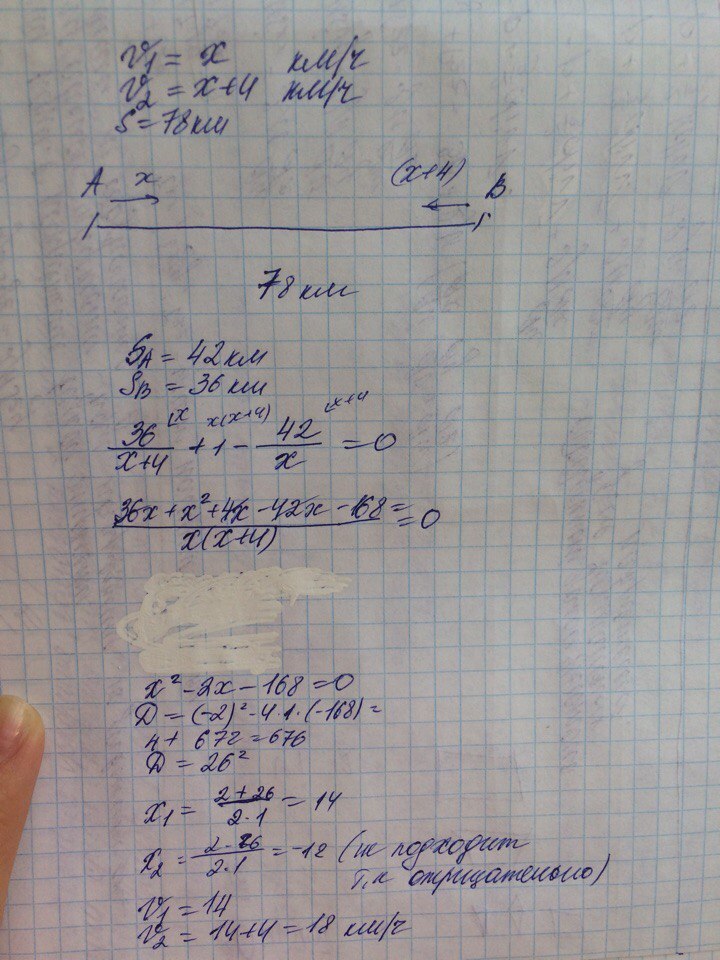 V₁ = x км/ч
V₂ = x+4 км/ч
S = 78 км
A x (x+4) B
78 км
S_A = 42 км
S_B = 36 км
36/(x+4) (x + 1 x(x+4) − 42/x (x+4 = 0
(36x + x² + 4x − 42x − 168)/(x(x+4)) = = 0
x² − 2x − 168 = 0
D = (−2)² − 4·1·(−168) =
4 + 672 = 676
D = 26²
x₁ = (2+26)/(2·1) = 14
x₂ = (2−26)/(2·1) = −12 (не подходит
т.к отрицательно)
V₁ = 14
V₂ = 14+4 = 18 км/ч